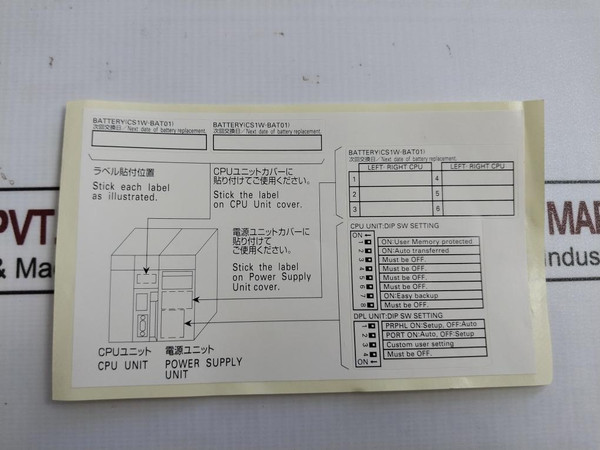 BATTERY(CS1W-BAT01)
次回交換日／Next date of battery replacement.
BATTERY(CS1W-BAT01)
次回交換日／Next date of battery replacement.
ラベル貼付位置
Stick each label
as illustrated.
CPUユニットカバーに
貼り付けてご使用ください。
Stick the label
on CPU Unit cover.
電源ユニットカバーに
貼り付けて
ご使用ください。
Stick the label
on Power Supply
Unit cover.
CPUユニット
CPU UNIT
電源ユニット
POWER SUPPLY
UNIT
BATTERY(CS1W-BAT01)
次回交換日／Next date of battery replacement.
LEFT・RIGHT CPU
LEFT・RIGHT CPU
1
4
2
5
3
6
CPU UNIT:DIP SW SETTING
ON←
1 ON:User Memory protected
2 ON:Auto transferred
3 Must be OFF.
4 Must be OFF.
5 Must be OFF.
6 Must be OFF.
7 ON:Easy backup
8 Must be OFF.
DPL UNIT:DIP SW SETTING
1 PRPHL ON:Setup, OFF:Auto
2 PORT ON:Auto, OFF:Setup
3 Custom user setting
4 Must be OFF.
ON←
PVT
& Ma
MAR
indus